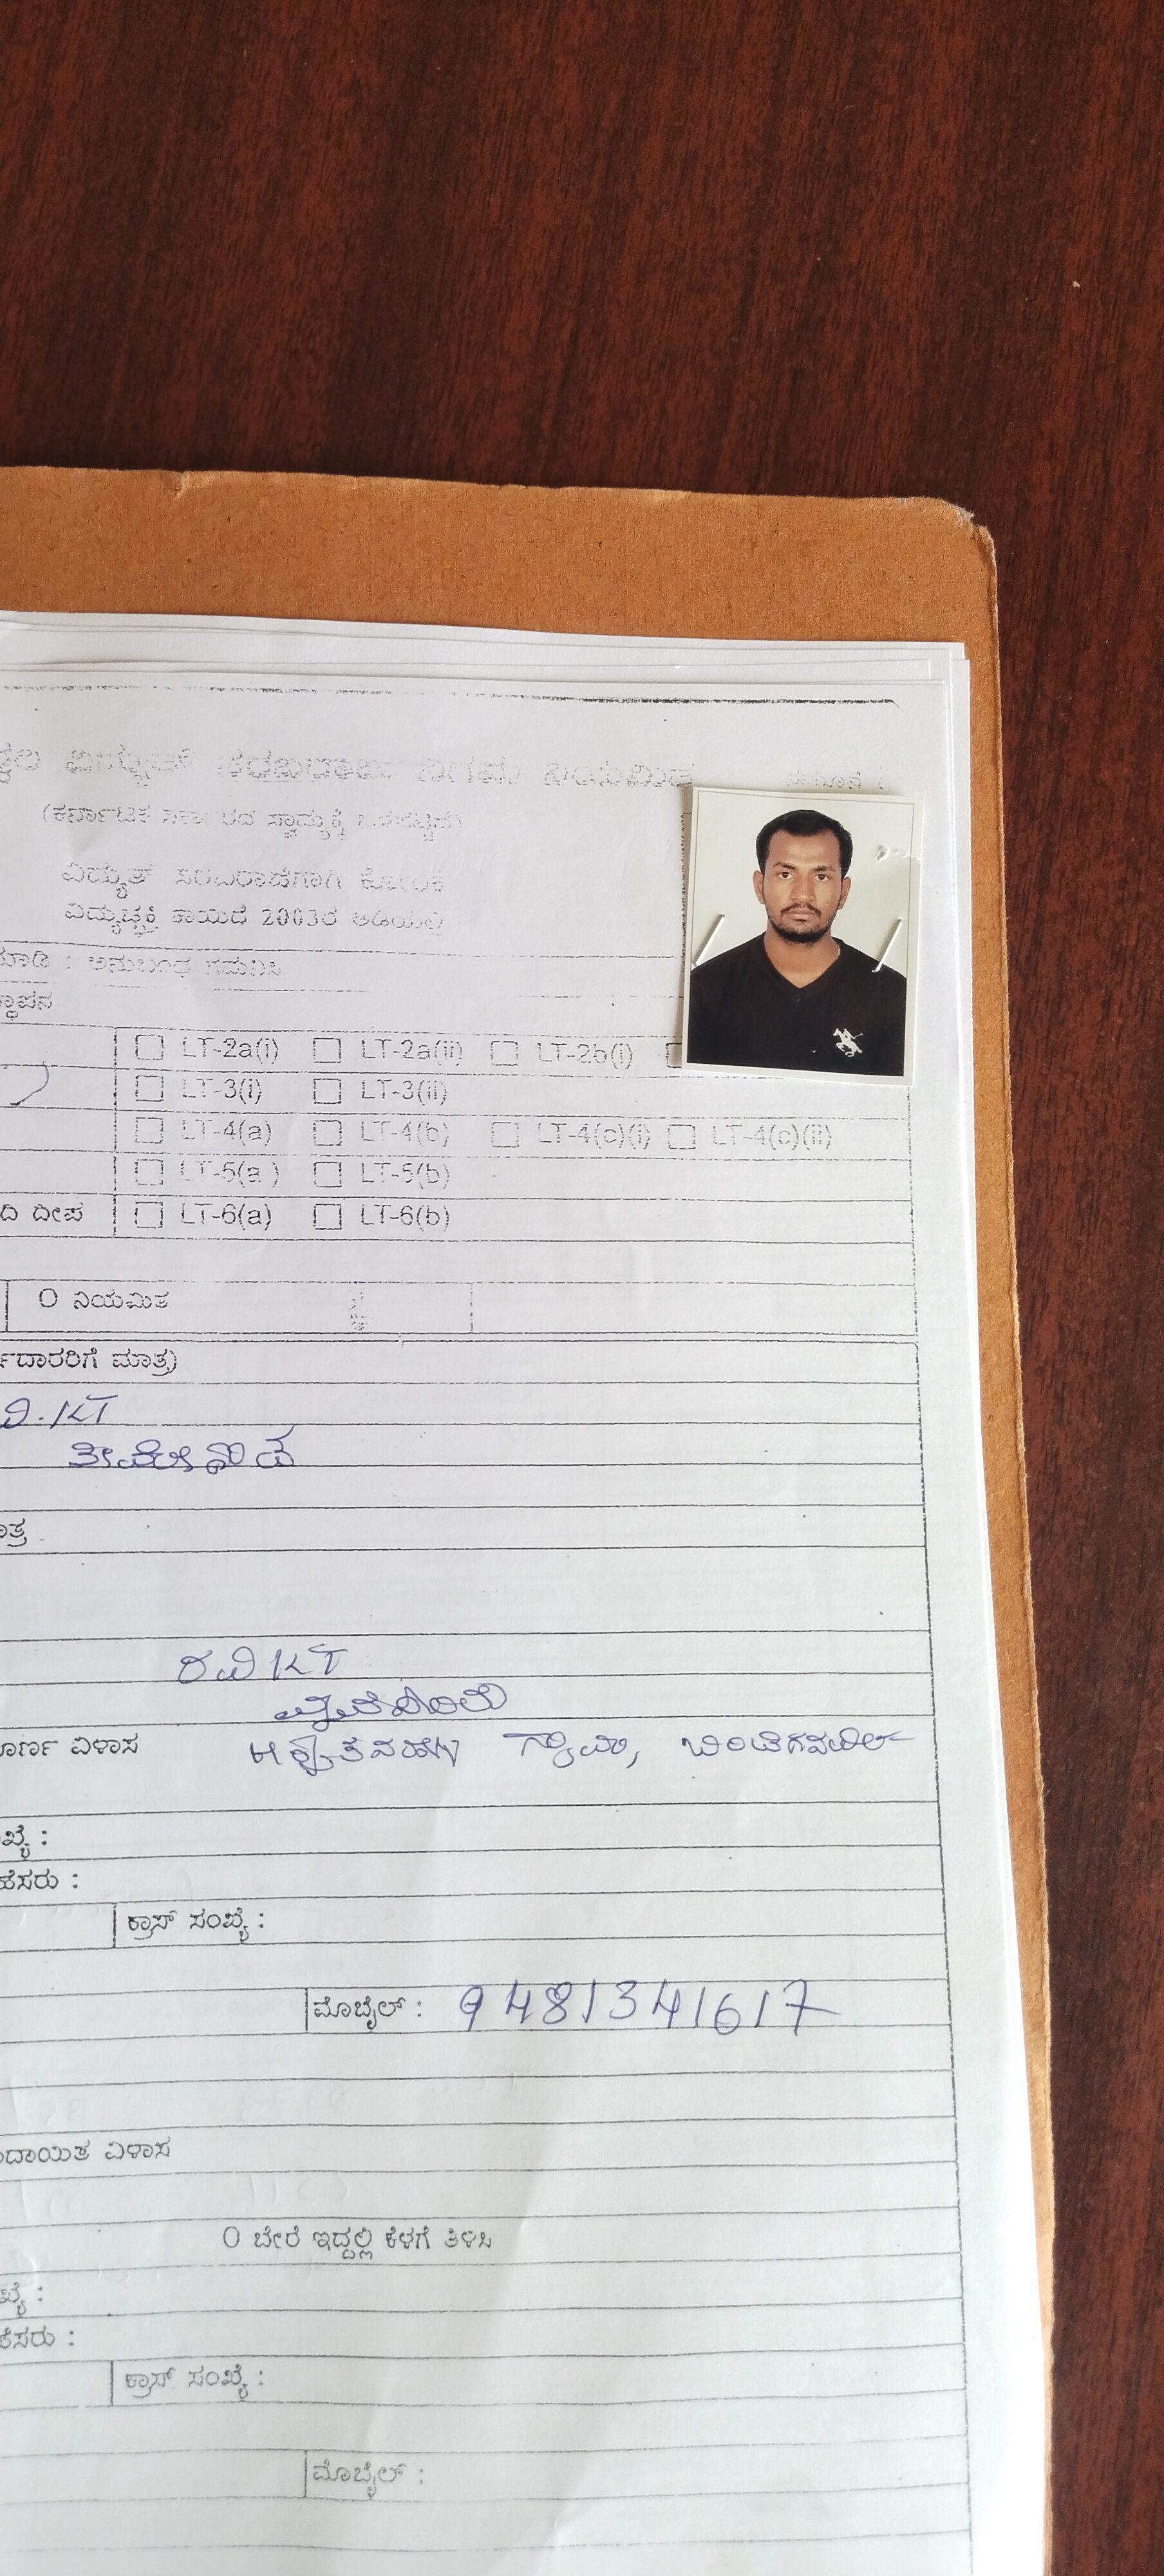 ವಿದ್ಯುತ್ ಸರಬರಾಜು ನಿಗಮ ನಿಯಮಿತ
(ಕರ್ನಾಟಕ ಸರ್ಕಾರದ ಸ್ವಾಮ್ಯಕ್ಕೆ ಒಳಪಟ್ಟಿದೆ)
ವಿದ್ಯುತ್ ಸರಬರಾಜಿಗಾಗಿ ಕೋರಿಕೆ
ವಿದ್ಯುಚ್ಛಕ್ತಿ ಕಾಯಿದೆ 2003ರ ಅಡಿಯಲ್ಲಿ
ಮಾಡಿ : ಅನುಬಂಧ ಗಮನಿಸಿ
ಸ್ಥಾಪನ
LT-2a(i) LT-2a(ii) LT-2b(i)
LT-3(i) LT-3(ii)
LT-4(a) LT-4(b) LT-4(c)(i) LT-4(c)(ii)
LT-5(a) LT-5(b)
ದಿ ದೀಪ LT-6(a) LT-6(b)
O ನಿಯಮಿತ
ರ್ಜಿದಾರರಿಗೆ ಮಾತ್ರ)
ವಿ.KT
ಮಾತ್ರ
ರವಿ KT
ಪೂರ್ಣ ವಿಳಾಸ
ಸಂಖ್ಯೆ :
ಹೆಸರು :
ಕ್ರಾಸ್ ಸಂಖ್ಯೆ :
ಮೊಬೈಲ್ : 9481341617
ದಾಯಿತ ವಿಳಾಸ
O ಬೇರೆ ಇದ್ದಲ್ಲಿ ಕೆಳಗೆ ತಿಳಿಸಿ
ಖ್ಯೆ :
ಹೆಸರು :
ಕ್ರಾಸ್ ಸಂಖ್ಯೆ :
ಮೊಬೈಲ್ :